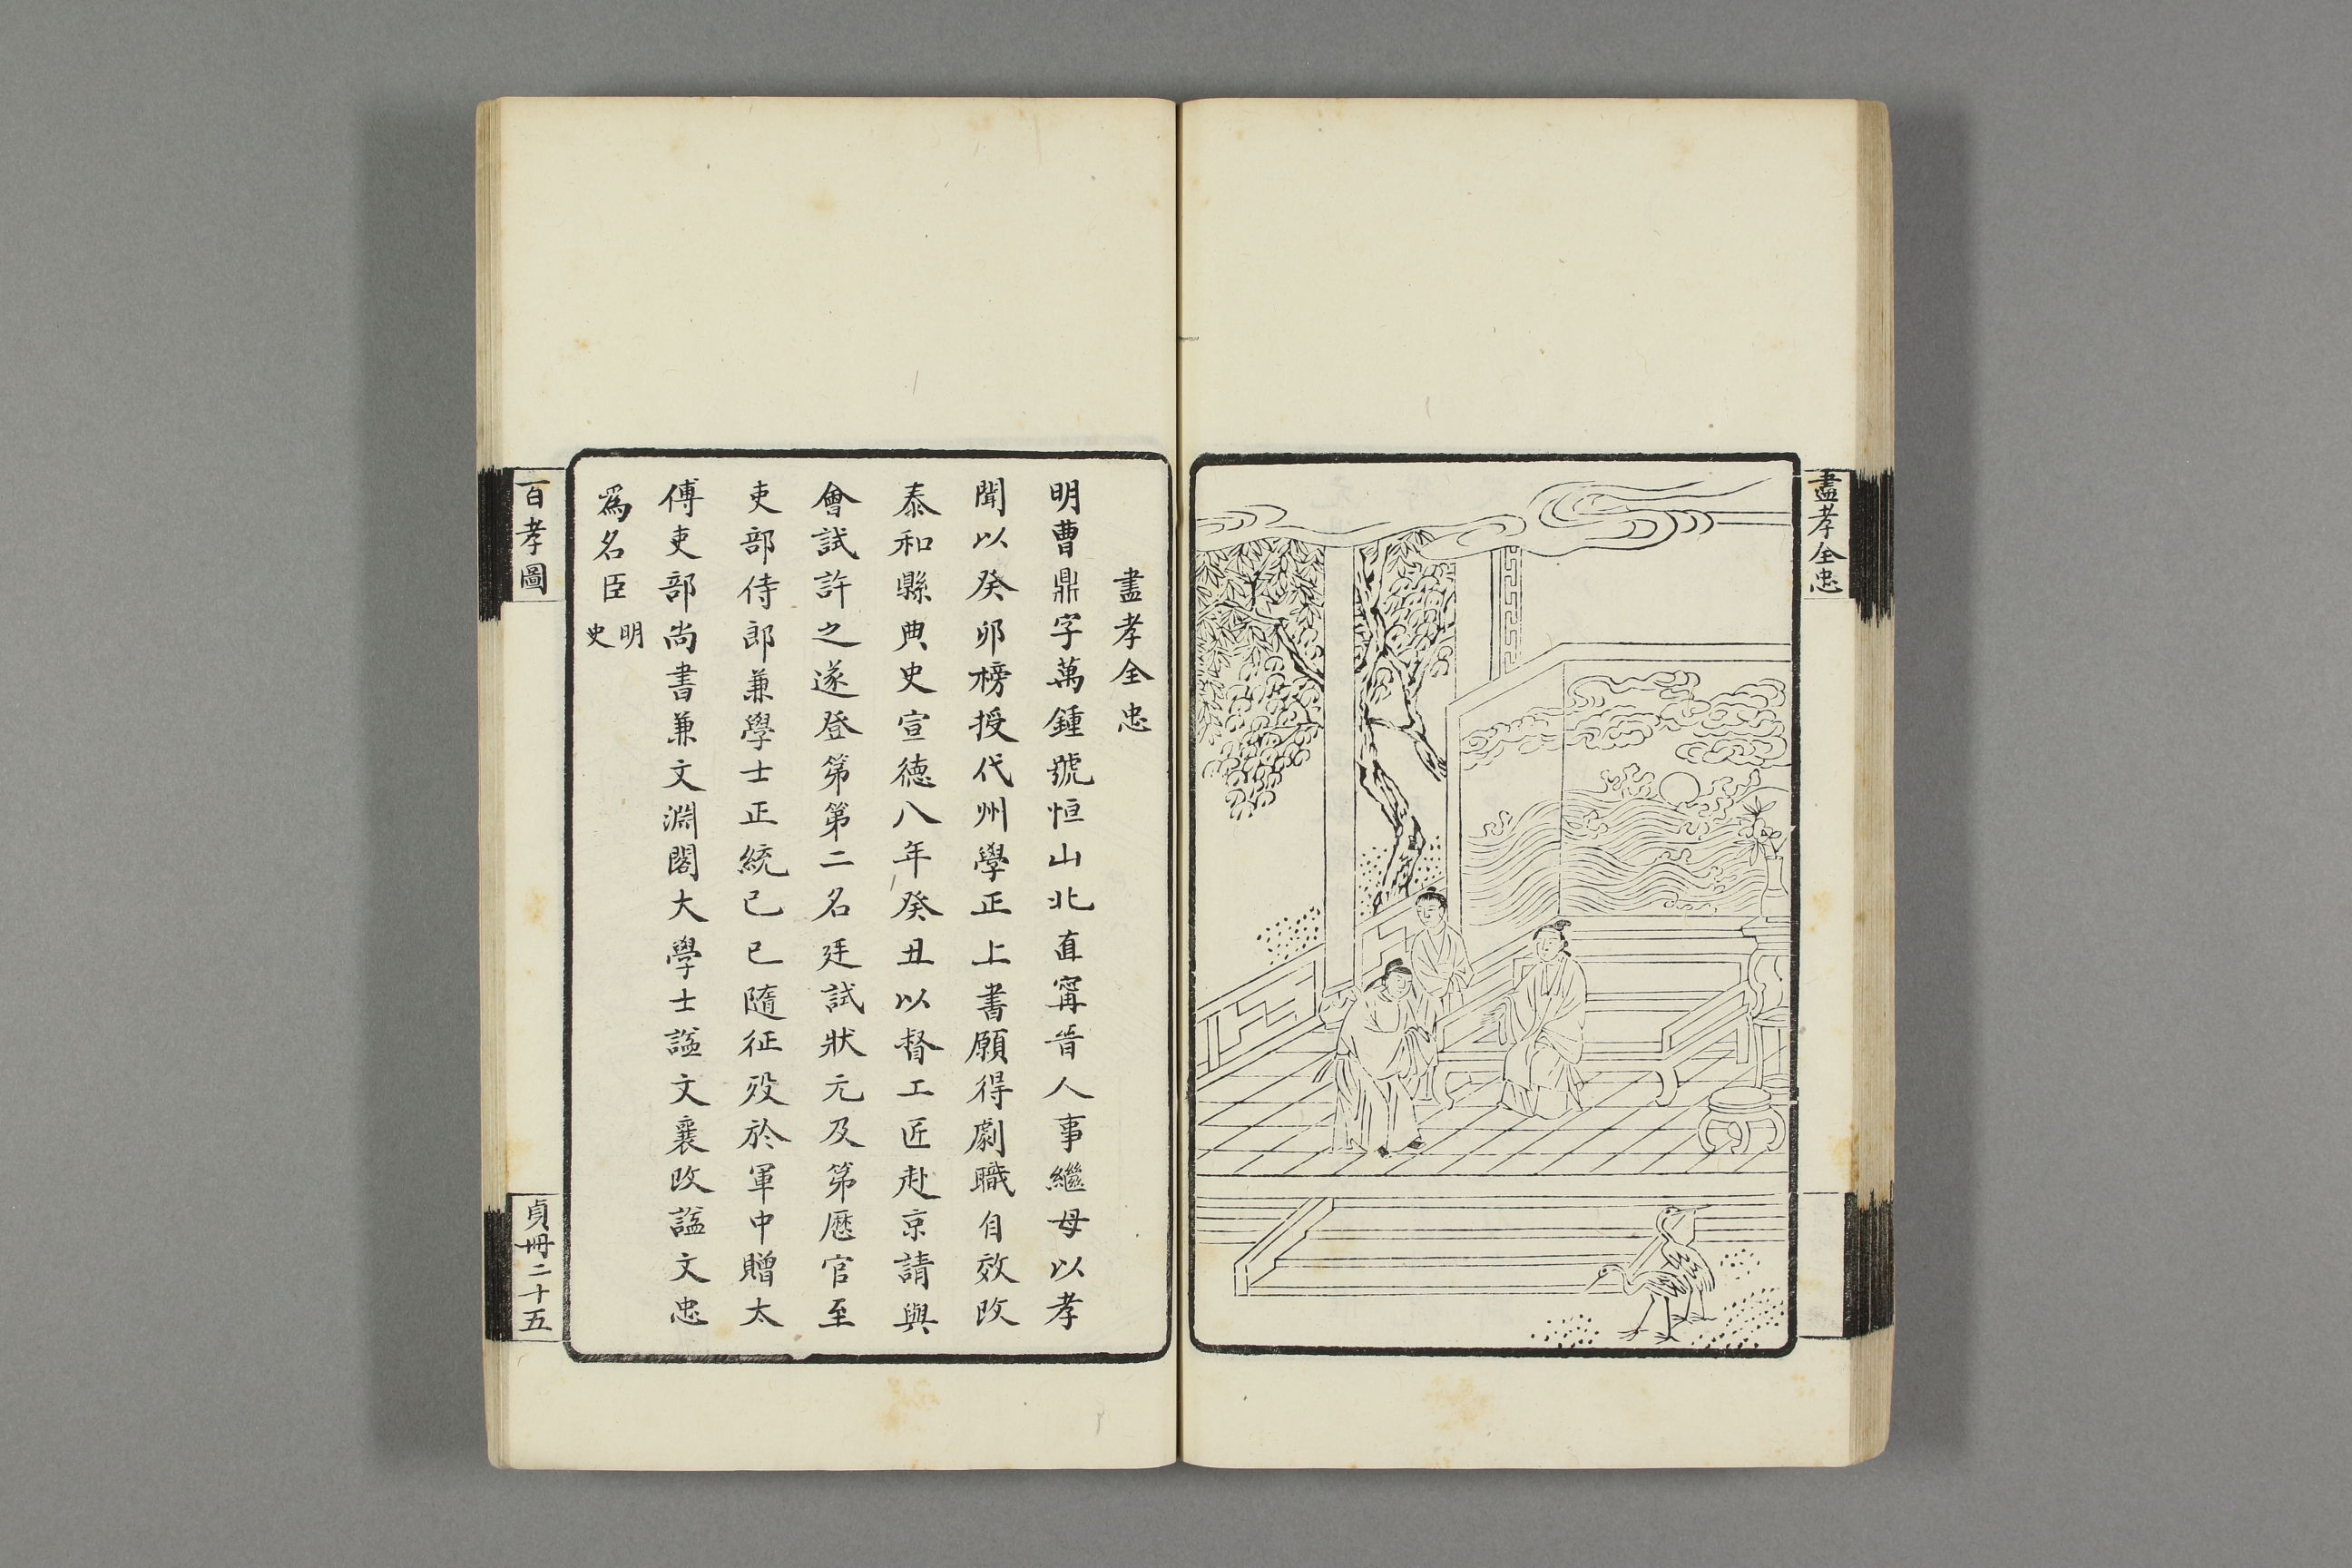 盡孝全忠
盡孝全忠
明曹鼎字萬鍾號恒山北直甯晋人事繼母以孝
聞以癸卯榜授代州學正上書願得劇職自效改
泰和縣典史宣德八年癸丑以督工匠赴京請與
會試許之遂登第第二名廷試狀元及第歷官至
吏部侍郎兼學士正統己巳隨征歿於軍中贈太
傅吏部尚書兼文淵閣大學士諡文襄改諡文忠
爲名臣 明史
百孝圖
貞冊二十五